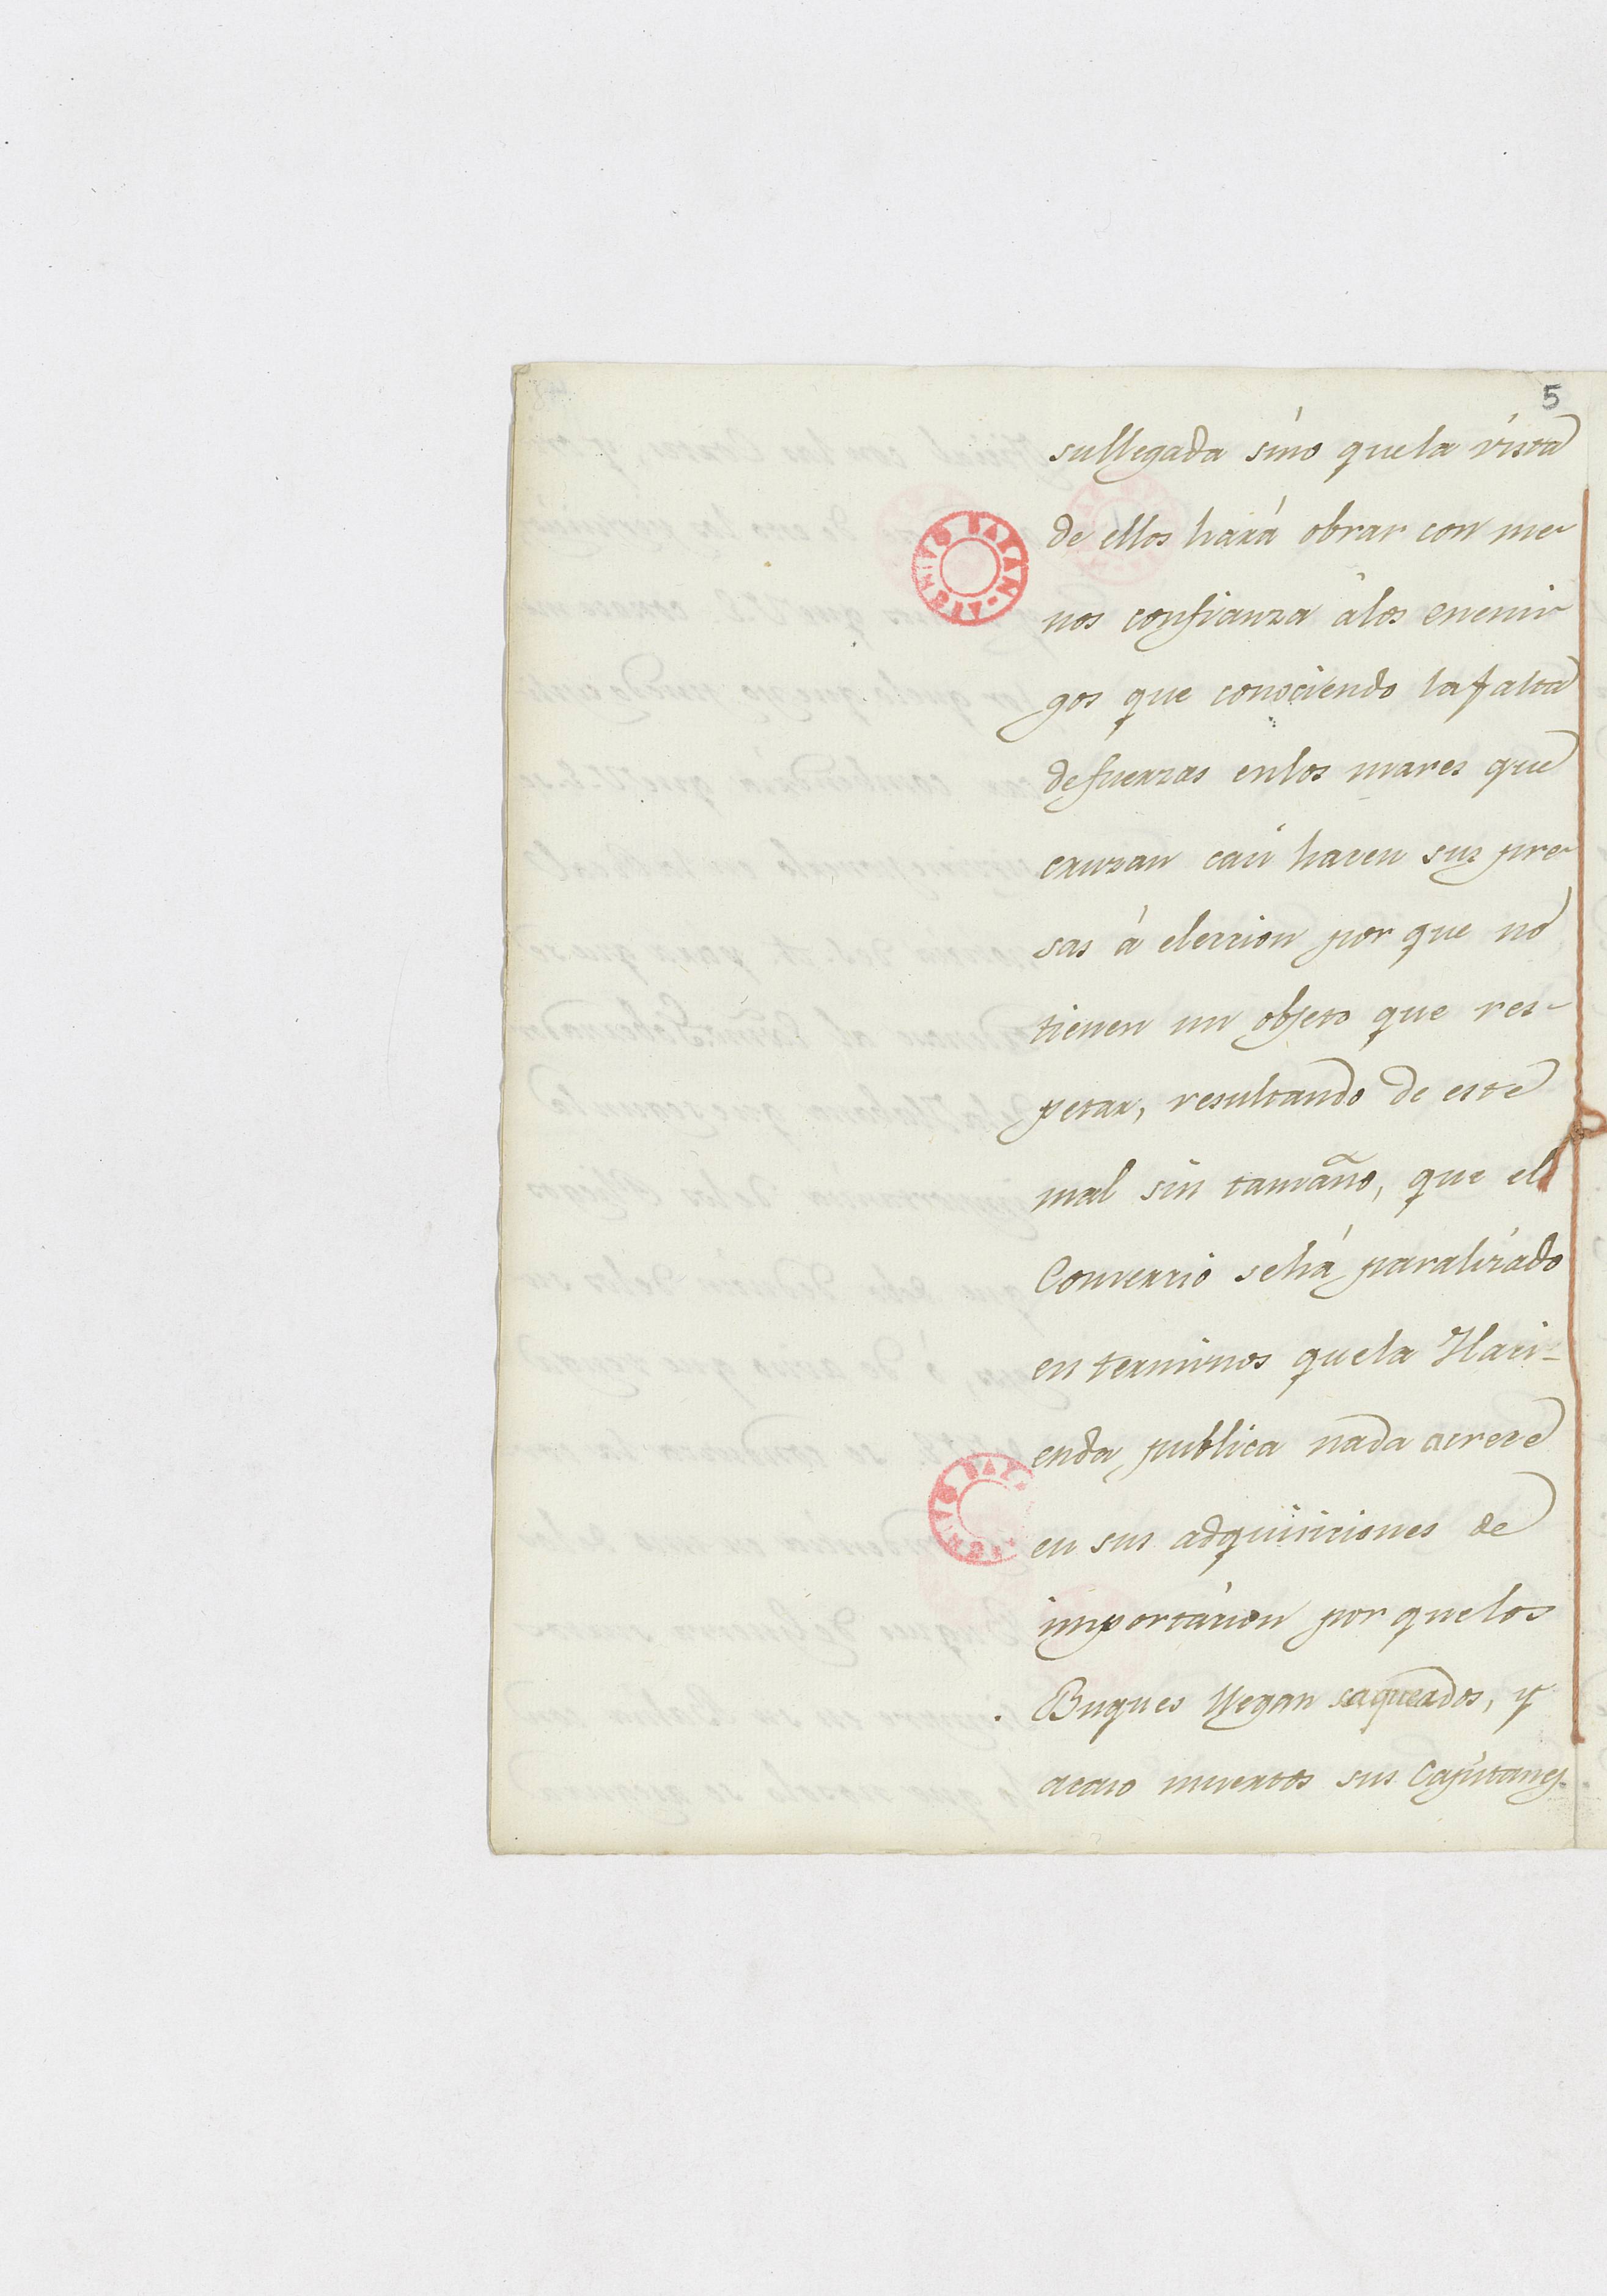 5
sullegada sino quela vista
de ellos hará obrar con me-
nos confianza álos enemi-
gos que conociendo lafalta
defuerzas enlos mares que
cruzan casi hacen sus pre-
sas á eleccion por que no
tienen un objeto que res-
petar, resultando de este
mal sin tamaño, que el
Comercio sehá paralizado
en terminos quela Haci-
enda publica nada acrece
en sus adquisiciones de
importácion por quelos
Buques llegan saqueados, y
acaso muertos sus Capitanes